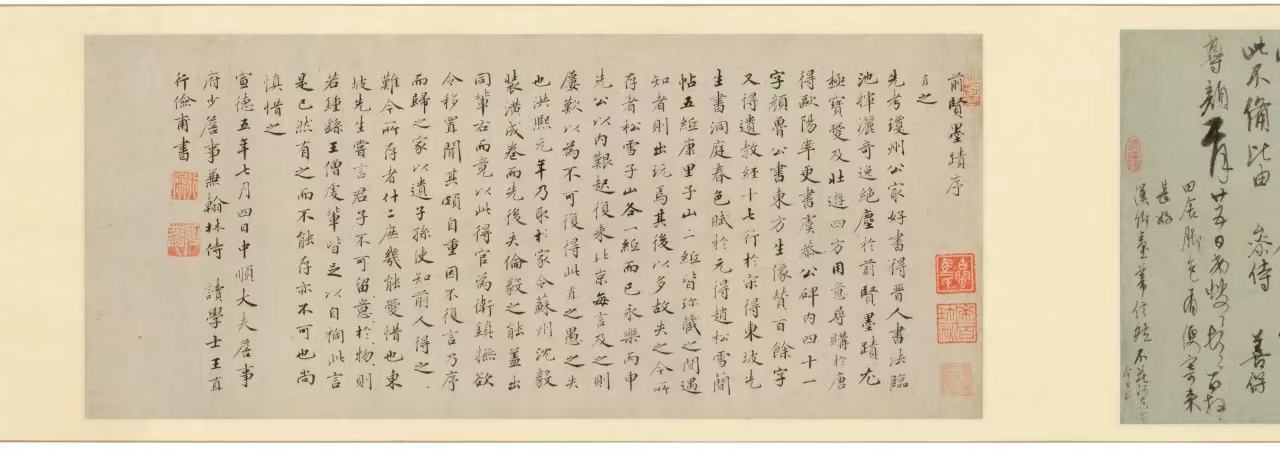 此不備 善保
尊顏 廿五日
前賢墨蹟序
直之
先考瓊州公家好書得晋人書法臨
池揮灑奇逸絕塵於前賢墨蹟尤
極寶愛及壯遊四方用意尋購於唐
得歐陽率更書虞恭公碑內四十一
字顏魯公書東方生像賛百餘字
又得遺教經十七行於宋得東坡先
生書洞庭春色賦於元得趙松雪簡
帖五紙康里子山二紙皆珎藏之間遇
知者則出玩焉其後以多故失之今所
存者松雪子山各一紙而已永樂丙申
先公以內艱起復來北京每言及之則
屢歎以為不可復得此直之愚之失
也洪熙元年乃取於家令蘇州沈毅
裝潢成卷而先後失倫毅之能蓋出
同輩右而竟以此得官為衛鎮撫欲
令移置聞其頗自重因不復言乃序
而歸之家以遺子孫使知前人得之
難今所存者什二庶幾能愛惜也東
坡先生嘗言君子不可留意於物則
若鍾繇王僧虔輩皆之以自禍此言
是已然有之而不能存亦不可也尚
慎惜之
宣德五年七月四日中順大夫詹事
府少詹事兼翰林侍 讀學士王直
行儉甫書